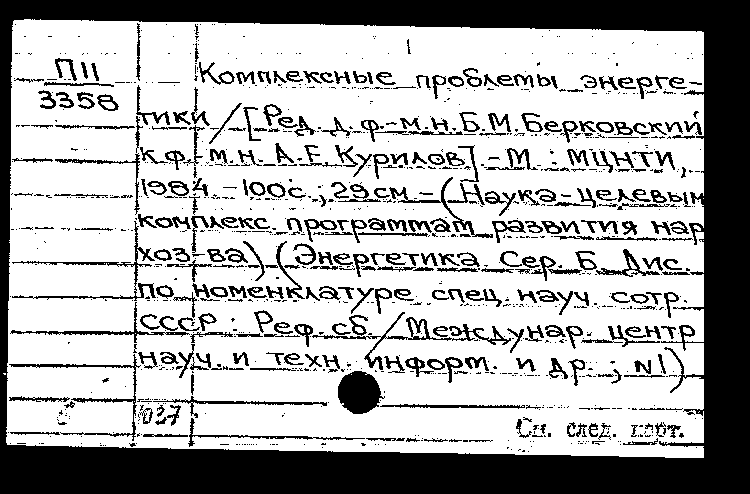 1
П11
3358
Комплексные проблемы энерге-
тики / [Ред. д. ф.-м. н. Б. М. Берковский
к. ф.-м. н. А. Е. Курилов] - М. : МЦНТИ,
1984. - 100с. ; 29 см - (Наука - целевым
комплекс программам развития нар
хоз-ва) (Энергетика. Сер. Б. Дис.
по номенклатуре спец. науч. сотр.
СССР : Реф. сб. / Междунар. центр
науч. и техн. информ. и др. ; N1)
б 037
См. след. карт.